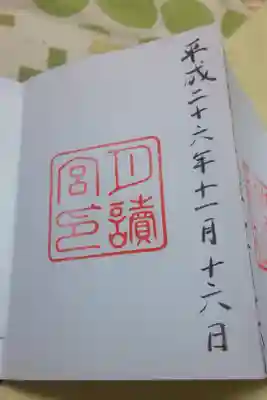 平成二十六年十一月十六日
月讀
宮印